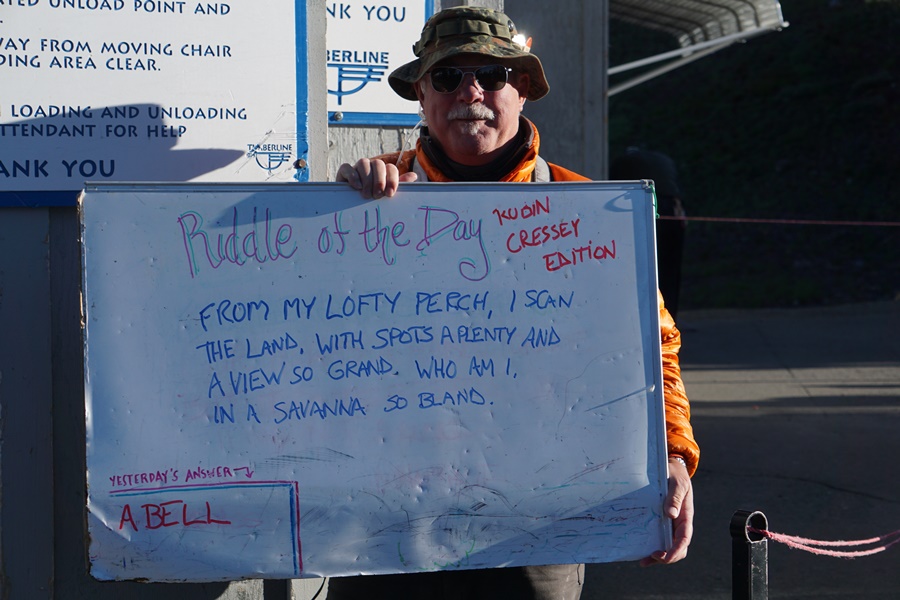 UNLOAD POINT AND
AWAY FROM MOVING CHAIR
AREA CLEAR.
LOADING AND UNLOADING
ATTENDANT FOR HELP
THANK YOU
TIMBERLINE
THANK YOU
TIMBERLINE
Riddle of the Day
CRESSEY
EDITION
FROM MY LOFTY PERCH, I SCAN
THE LAND, WITH SPOTS A PLENTY AND
A VIEW SO GRAND. WHO AM I,
IN A SAVANNA SO BLAND.
YESTERDAY'S ANSWER
A BELL